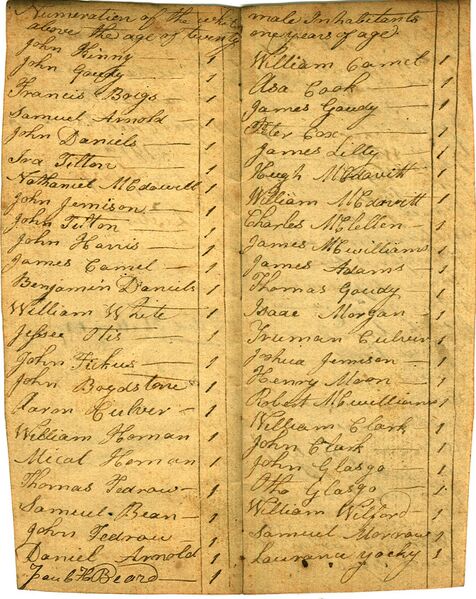 Numeration of the white
above the age of twenty
John Kinny 1
John Gaudy 1
Francis Boigs 1
Samuel Arnold 1
John Daniels 1
Ira Tilton 1
Nathaniel McDowill 1
John Jemison 1
John Tilton 1
John Harris 1
James Camel 1
Benjamin Daniels 1
William White 1
Jessee Otis 1
John 1
John Boydstone 1
Aaron Culver 1
William Homan 1
Mical Homan 1
Thomas Tedrow 1
Samuel Bean 1
John Tedrow 1
Daniel Arnold 1
Beard 1
male Inhabitants
one years of age
William Camel 1
Asa Cook 1
James Gaudy 1
Peter Cox 1
James Lilly 1
Hugh McDavitt 1
William McDevitt 1
Charles McClellen 1
James McWilliams 1
James Adams 1
Thomas Gaudy 1
Isaac Morgan 1
Truman Culver 1
Joshua Jemison 1
Henry Moon 1
Robert McWilliams 1
William Clark 1
John Clark 1
John Glasgo 1
Otho Glasgo 1
William Willard 1
Samuel Morrow 1
Laurance Yochy 1